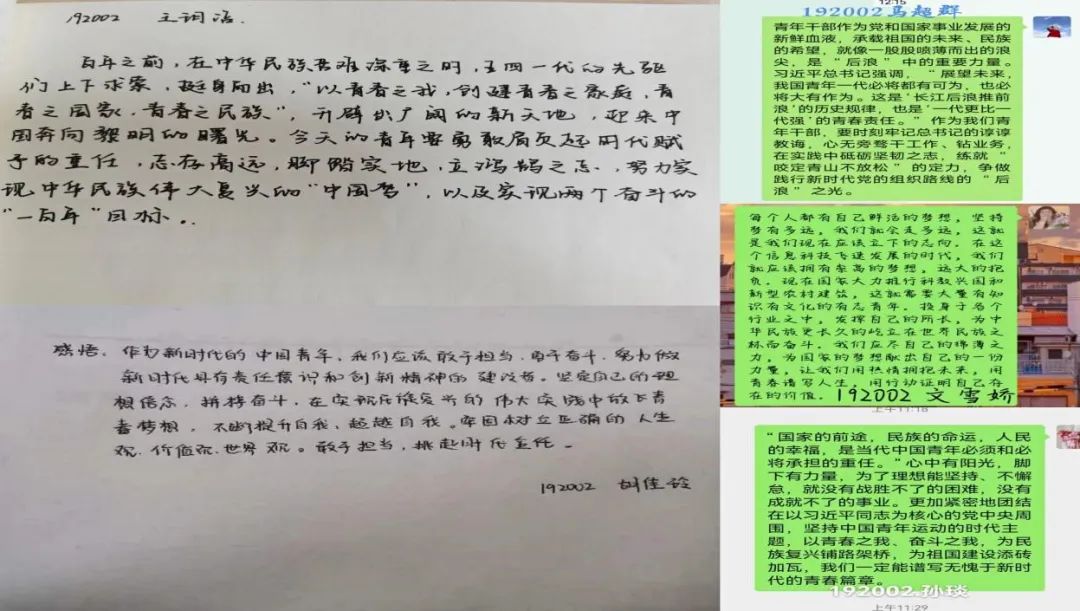 192002 王词语.
百年之前，在中华民族苦难深重之时，五四一代的先驱
们上下求索，挺身而出，“以青春之我，创建青春之家庭，青
春之国家，青春之民族”，开辟出广阔的新天地，迎来中
国奔向黎明的曙光。今天的青年要勇敢肩负起时代赋
予的重任，志存高远，脚踏实地，立鸿鹄之志，努力实
现中华民族伟大复兴的“中国梦”，以及实现两个奋斗的
“一百年”目标。
感悟：作为新时代的中国青年，我们应该敢于担当，勇于奋斗，努力做
新时代具有责任意识和创新精神的建设者。坚定自己的理
想信念，拼搏奋斗，在实现民族复兴的伟大实践中放飞青
春梦想，不断提升自我、超越自我。牢固树立正确的人生
观、价值观、世界观。敢于担当，挑起时代重任。
192002 胡佳玲
12:15
192002马超群
青年干部作为党和国家事业发展的
新鲜血液，承载祖国的未来、民族
的希望，就像一股股喷薄而出的浪
尖，是“后浪”中的重要力量。
习近平总书记强调，“展望未来，
我国青年一代必将都有可为，也必
将大有作为。这是‘长江后浪推前
浪’的历史规律，也是‘一代更比一
代强’的青春责任。”作为我们青
年干部，要时刻牢记总书记的谆谆
教诲，心无旁骛干工作、钻业务，
在实践中砥砺坚韧之志，练就“
咬定青山不放松”的定力，争做
践行新时代党的组织路线的“后
浪”之光。
每个人都有自己鲜活的梦想，坚持
梦有多远，我们就会走多远，这就
是我们现在应该立下的志向。在这
个信息科技飞速发展的时代，我们
就应该拥有崇高的梦想，远大的抱
负。现在国家大力推行科教兴国和
新型农村建筑，这就需要大量有知
识有文化的有志青年。投身于各个
行业之中，发挥自己的所长，为中
华民族更长久的屹立在世界民族之
林而奋斗。我们应尽自己的绵薄之
力，为国家的梦想献出自己的一份
力量，让我们用热情拥抱未来，用
青春谱写人生，用行动证明自己存
在的价值。192002 文雪娇
上午11:18
“国家的前途，民族的命运，人民
的幸福，是当代中国青年必须和必
将承担的重任。”心中有阳光，脚
下有力量，为了理想能坚持、不懈
怠，就没有战胜不了的困难，没有
成就不了的事业。更加紧密地团结
在以习近平同志为核心的党中央周
围，坚持中国青年运动的时代主
题，以青春之我、奋斗之我，为民
族复兴铺路架桥，为祖国建设添砖
加瓦，我们一定能谱写无愧于新时
代的青春篇章。
192002.孙琰
上午11:29